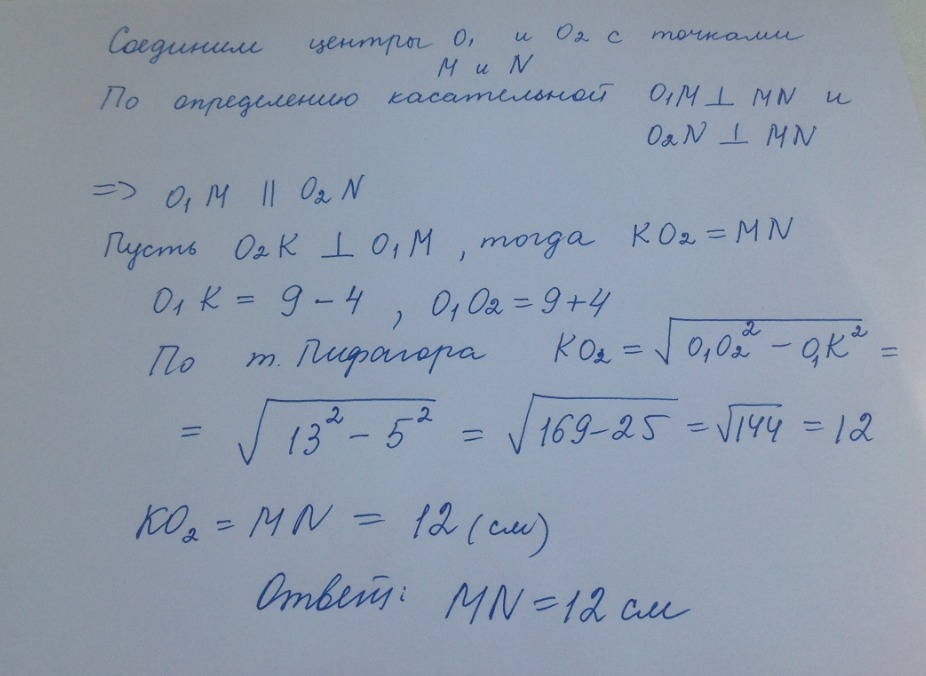 Соединим центры O₁ и O₂ с точками
M и N
По определению касательной O₁M ⊥ MN и
O₂N ⊥ MN
=> O₁M || O₂N
Пусть O₂K ⊥ O₁M , тогда KO₂ = MN
O₁K = 9 - 4 , O₁O₂ = 9 + 4
По т. Пифагора KO₂ = √(O₁O₂² - O₁K²) =
= √(13² - 5²) = √(169-25) = √144 = 12
KO₂ = MN = 12 (см)
Ответ: MN = 12 см